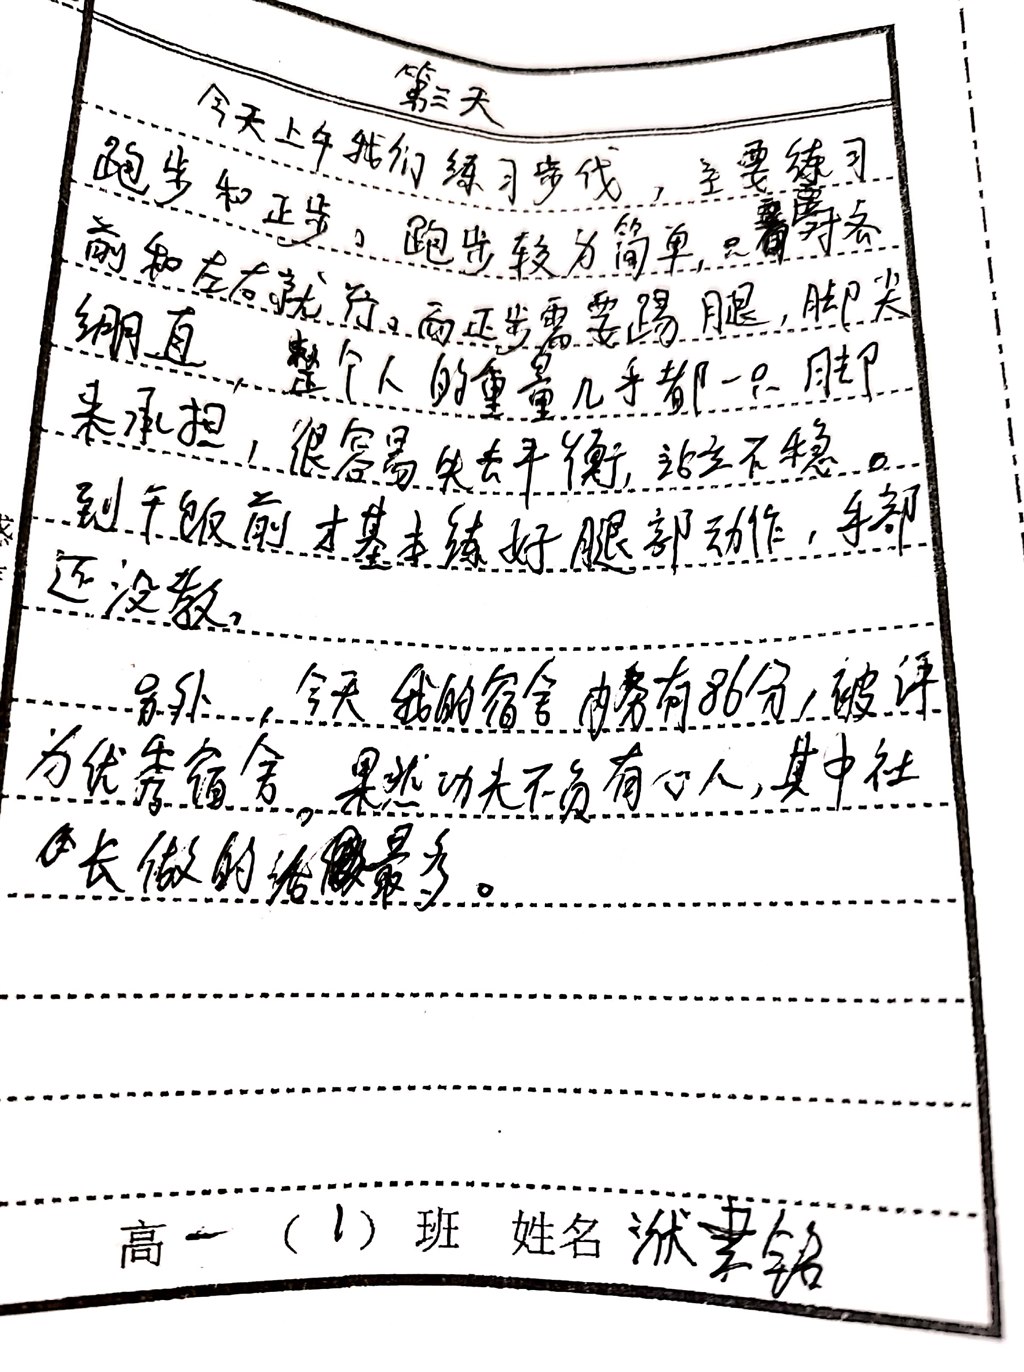 第三天
今天上午我们练习步伐，主要练习
跑步和正步。跑步较为简单，只需对齐
前和左右就行。而正步需要踢腿，脚尖
绷直，整个人的重量几乎都一只脚
来承担，很容易失去平衡，站立不稳。
到午饭前才基本练好腿部动作，手部
还没教。
另外，今天我的宿舍内务有86分，被评
为优秀宿舍。果然功夫不负有心人，其中社
长做的活最多。
高一（1）班 姓名